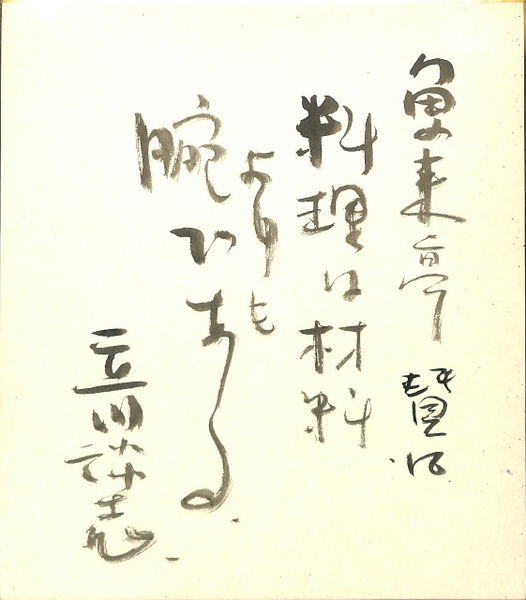 魚来亭 賛江
料理は材料
よりも
腕である
立川談志